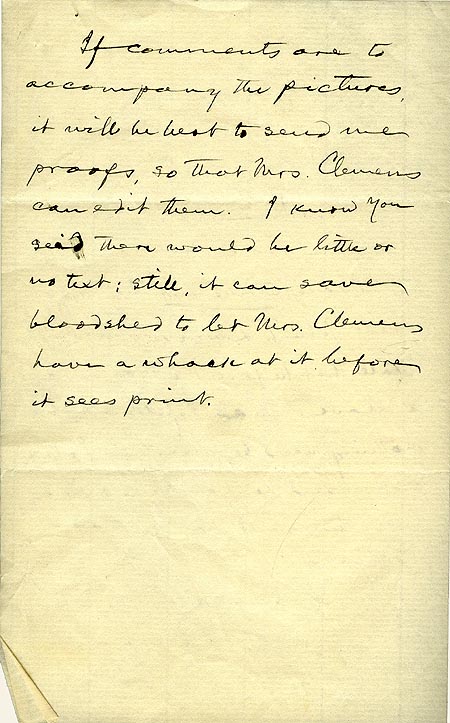 If comments are to
accompany the pictures,
it will be best to send me
proofs, so that Mrs. Clemens
can edit them. I know you
said there would be little or
no text; still, it can save
bloodshed to let Mrs. Clemens
have a whack at it before
it sees print.